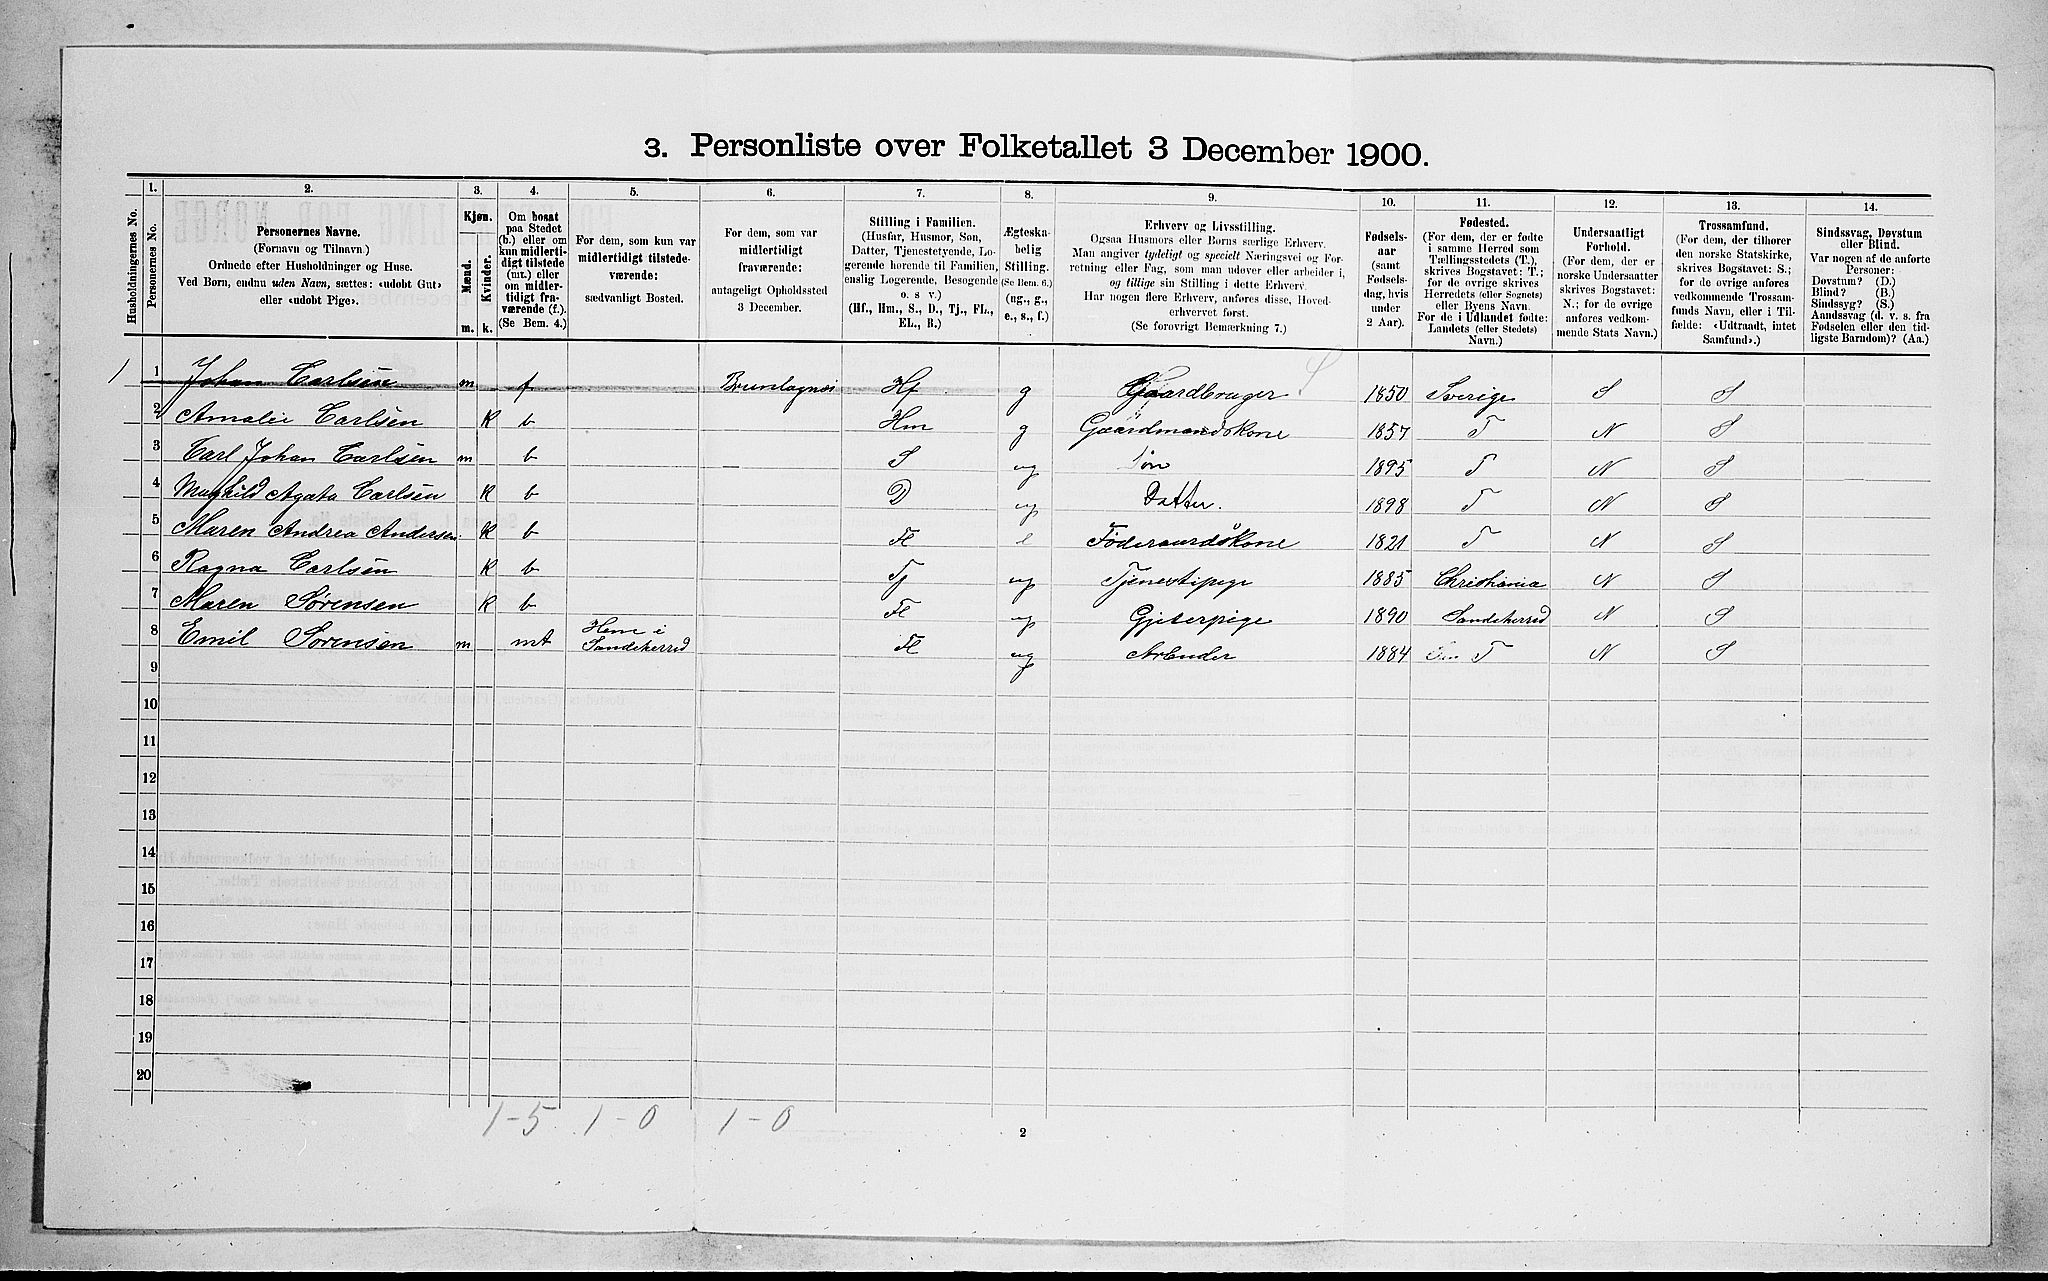 3. Personliste over Folketallet 3 December 1900.
Husholdningernes No.
1. Personernes No.
2. Personernes Navne.
(Fornavn og Tilnavn.)
Ordnede efter Husholdninger og Huse.
Ved Børn, endnu uden Navn, sættes: «udøbt Gut»
eller «udøbt Pige».
3. Kjøn.
Mænd. m.
Kvinder. k.
4. Om bosat
paa Stedet
(b.) eller om
kun midlerti-
digt tilstede
(mt.) eller
om midler-
tidigt fra-
værende (f.).
(Se Bem. 4.)
5. For dem, som kun var
midlertidigt tilstede-
værende:
sædvanligt Bosted.
6. For dem, som var
midlertidigt
fraværende:
antageligt Opholdssted
3 December.
7. Stilling i Familien.
(Husfar, Husmor, Søn,
Datter, Tjenestetyende, Lo-
gerende hørende til Familien,
enslig Logerende, Besøgende
o. s v.)
(Hf., Hm., S., D., Tj., FL.,
EL., B.)
8. Ægteska-
belig
Stilling.
(Se Bem. 6.)
(ug., g.,
e., s., f.)
9. Erhverv og Livsstilling.
Ogsaa Husmors eller Børns særlige Erhverv.
Man angiver tydeligt og specielt Næringsvei og For-
retning eller Fag, som man udøver eller arbeider i,
og tillige sin Stilling i dette Erhverv.
Har nogen flere Erhverv, anføres disse, Hoved-
erhvervet først.
(Se forøvrigt Bemærkning 7.)
10. Fødsels-
aar
(samt
Fødsels-
dag, hvis
under
2 Aar).
11. Fødested.
(For dem, der er fødte
i samme Herred som
Tællingsstedets (T.),
skrives Bogstavet: T.;
for de øvrige skrives
Herredets (eller Sognets)
eller Byens Navn.
For de i Udlandet fødte:
Landets (eller Stedets)
Navn.)
12. Undersaatligt
Forhold.
(For dem, der er
norske Undersaatter
skrives Bogstavet:
N.; for de øvrige
anføres vedkom-
mende Stats Navn.)
13. Trossamfund.
(For dem, der tilhører
den norske Statskirke,
skrives Bogstavet: S.;
for de øvrige anføres
vedkommende Trossam-
funds Navn, eller i Til-
fælde: «Udtraadt, intet
Samfund».)
14. Sindssvag, Døvstum
eller Blind.
Var nogen af de anførte
Personer:
Døvstum? (D.)
Blind? (B.)
Sindssyg? (S.)
Aandssvag (d. v. s. fra
Fødselen eller den tid-
ligste Barndom)? (Aa.)
1 1 Johan Carlsen m f Brunlagnæs Hf g Gaardbruger S 1850 Sverige S S
2 Amalie Carlsen k b Hm g Gaardmandskone 1857 T N S
3 Carl Johan Carlsen m b S ug Søn 1895 T N S
4 Maghild Agata Carlsen k b D ug Datter. 1898 T N S
5 Maren Andrea Andersen k b Fl e Föderaadskone 1821 T N S
6 Ragna Carlsen k b Tj ug Tjenestipige 1885 Christiania N S
7 Maren Sørensen k b Fl ug Gjeterpige 1890 Sandeherred N S
8 Emil Sørensen m mt Hem i Sandeherred Fl ug Arbeider 1884 T N S
9
10
11
12
13
14
15
16
17
18
19
20
1-5 1-0 1-0
2